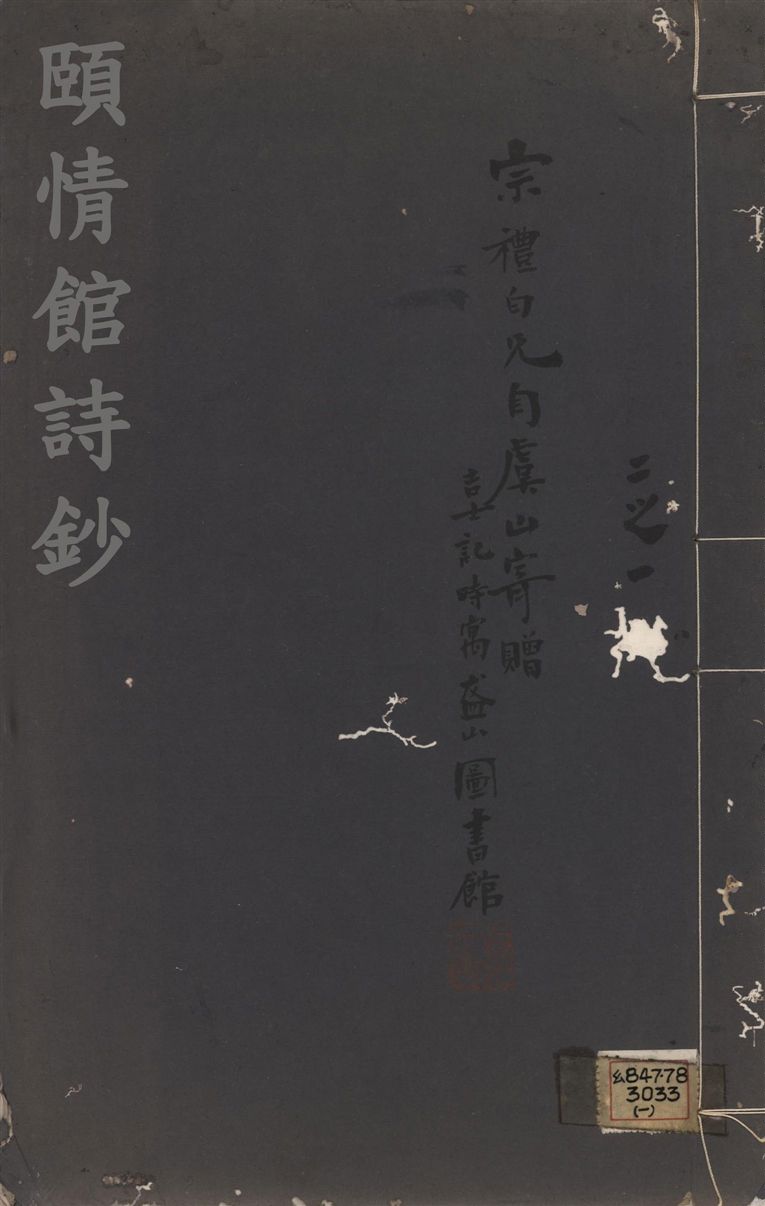 頤情館詩鈔
二之一
宗禮白兄自虞山寄贈
吉士記時寓盔山圖書館
847·78
3033
(一)